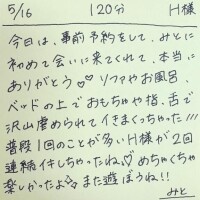 5/16 120分 H様
今日は、事前予約をして、みとに
初めて会いに来てくれて、本当に
ありがとう♡♡ソファやお風呂、
ベッドの上でおもちゃや指、舌で
沢山虐められてイきまくっちゃった!!!
普段1回のことが多いH様が2回
連続イキしちゃったね♡めちゃくちゃ
楽しかったよ☆また遊ぼうね!!
みと